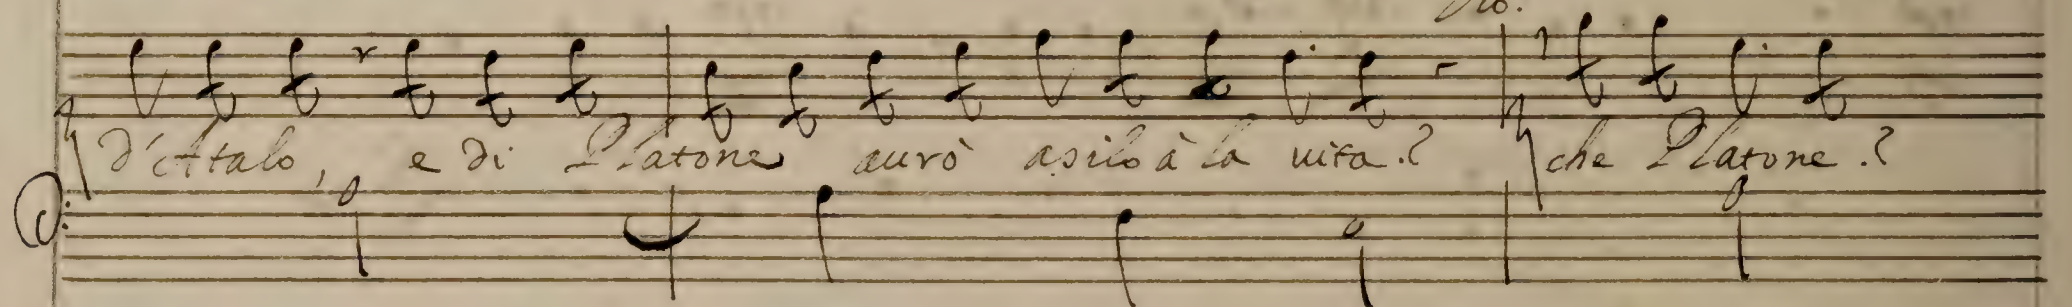 Dio.
d'Atalo, e di Platone aurò asilo à la uita.? che Platone.?